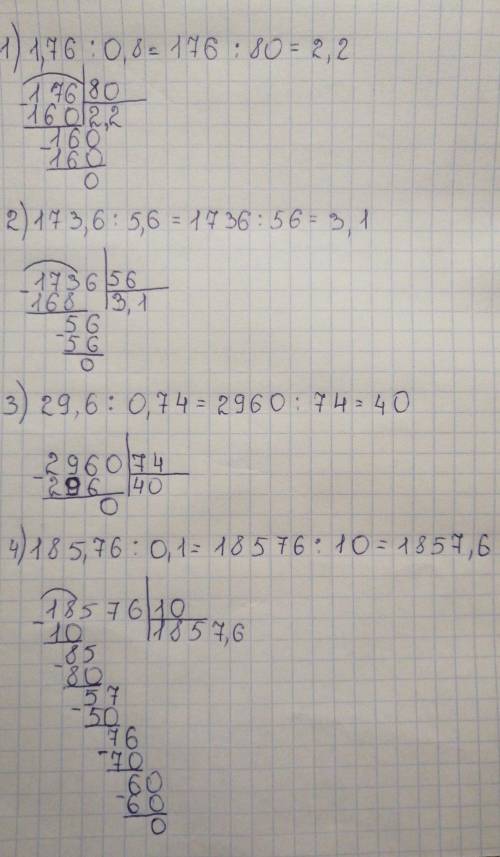 1) 1,76 : 0,8 = 176 : 80 = 2,2
-176 | 80
160 | 2,2
-160
160
0
2) 173,6 : 5,6 = 1736 : 56 = 3,1
-1736 | 56
168 | 3,1
-56
56
0
3) 29,6 : 0,74 = 2960 : 74 = 40
-2960 | 74
296 | 40
0
4) 185,76 : 0,1 = 18576 : 10 = 1857,6
-18576 | 10
10 | 1857,6
-85
80
-57
50
-76
70
-60
60
0